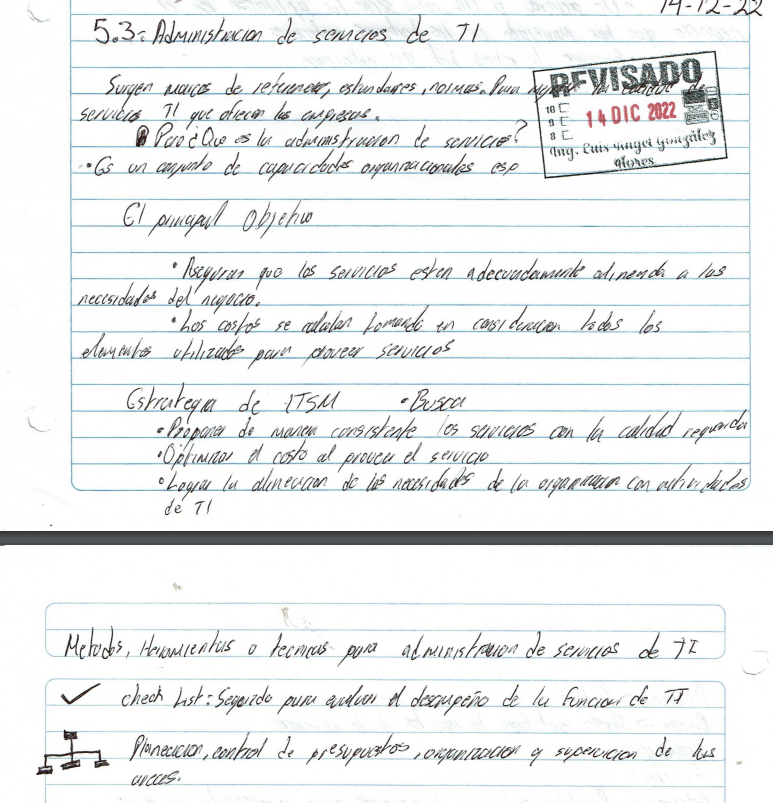 14-12-22
5.3: Administracion de servicios de TI
Surgen marcos de referencia, estandares, normas. Para la calidad de
servicios TI que ofrecen las empresas.
REVISADO
10
9
8
14 DIC 2022
Ing. Luis Angel González
Flores
Pero ¿Que es la administracion de servicios?
•Es un conjunto de capacidades organizacionales esp
El principal Objetivo
•Aseguran que los servicios esten adecuadamente alineada a las
necesidades del negocio.
•Los costos se calculan tomando en consideracion todos los
elementos utilizados para proveer servicios
Estrategia de ITSM •Busca
•Proponer de manera consistente los servicios con la calidad requerida
•Optimizar el costo al proveer el servicio
•Lograr la alineacion de las necesidades de la organizacion con actividades
de TI
Metodos, Herramientas o tecnicas para administracion de servicios de TI
check List: para evaluar el desempeño de la funcion de TI
Planeacion, control de presupuestos, organizacion y supervicion de las
areas.